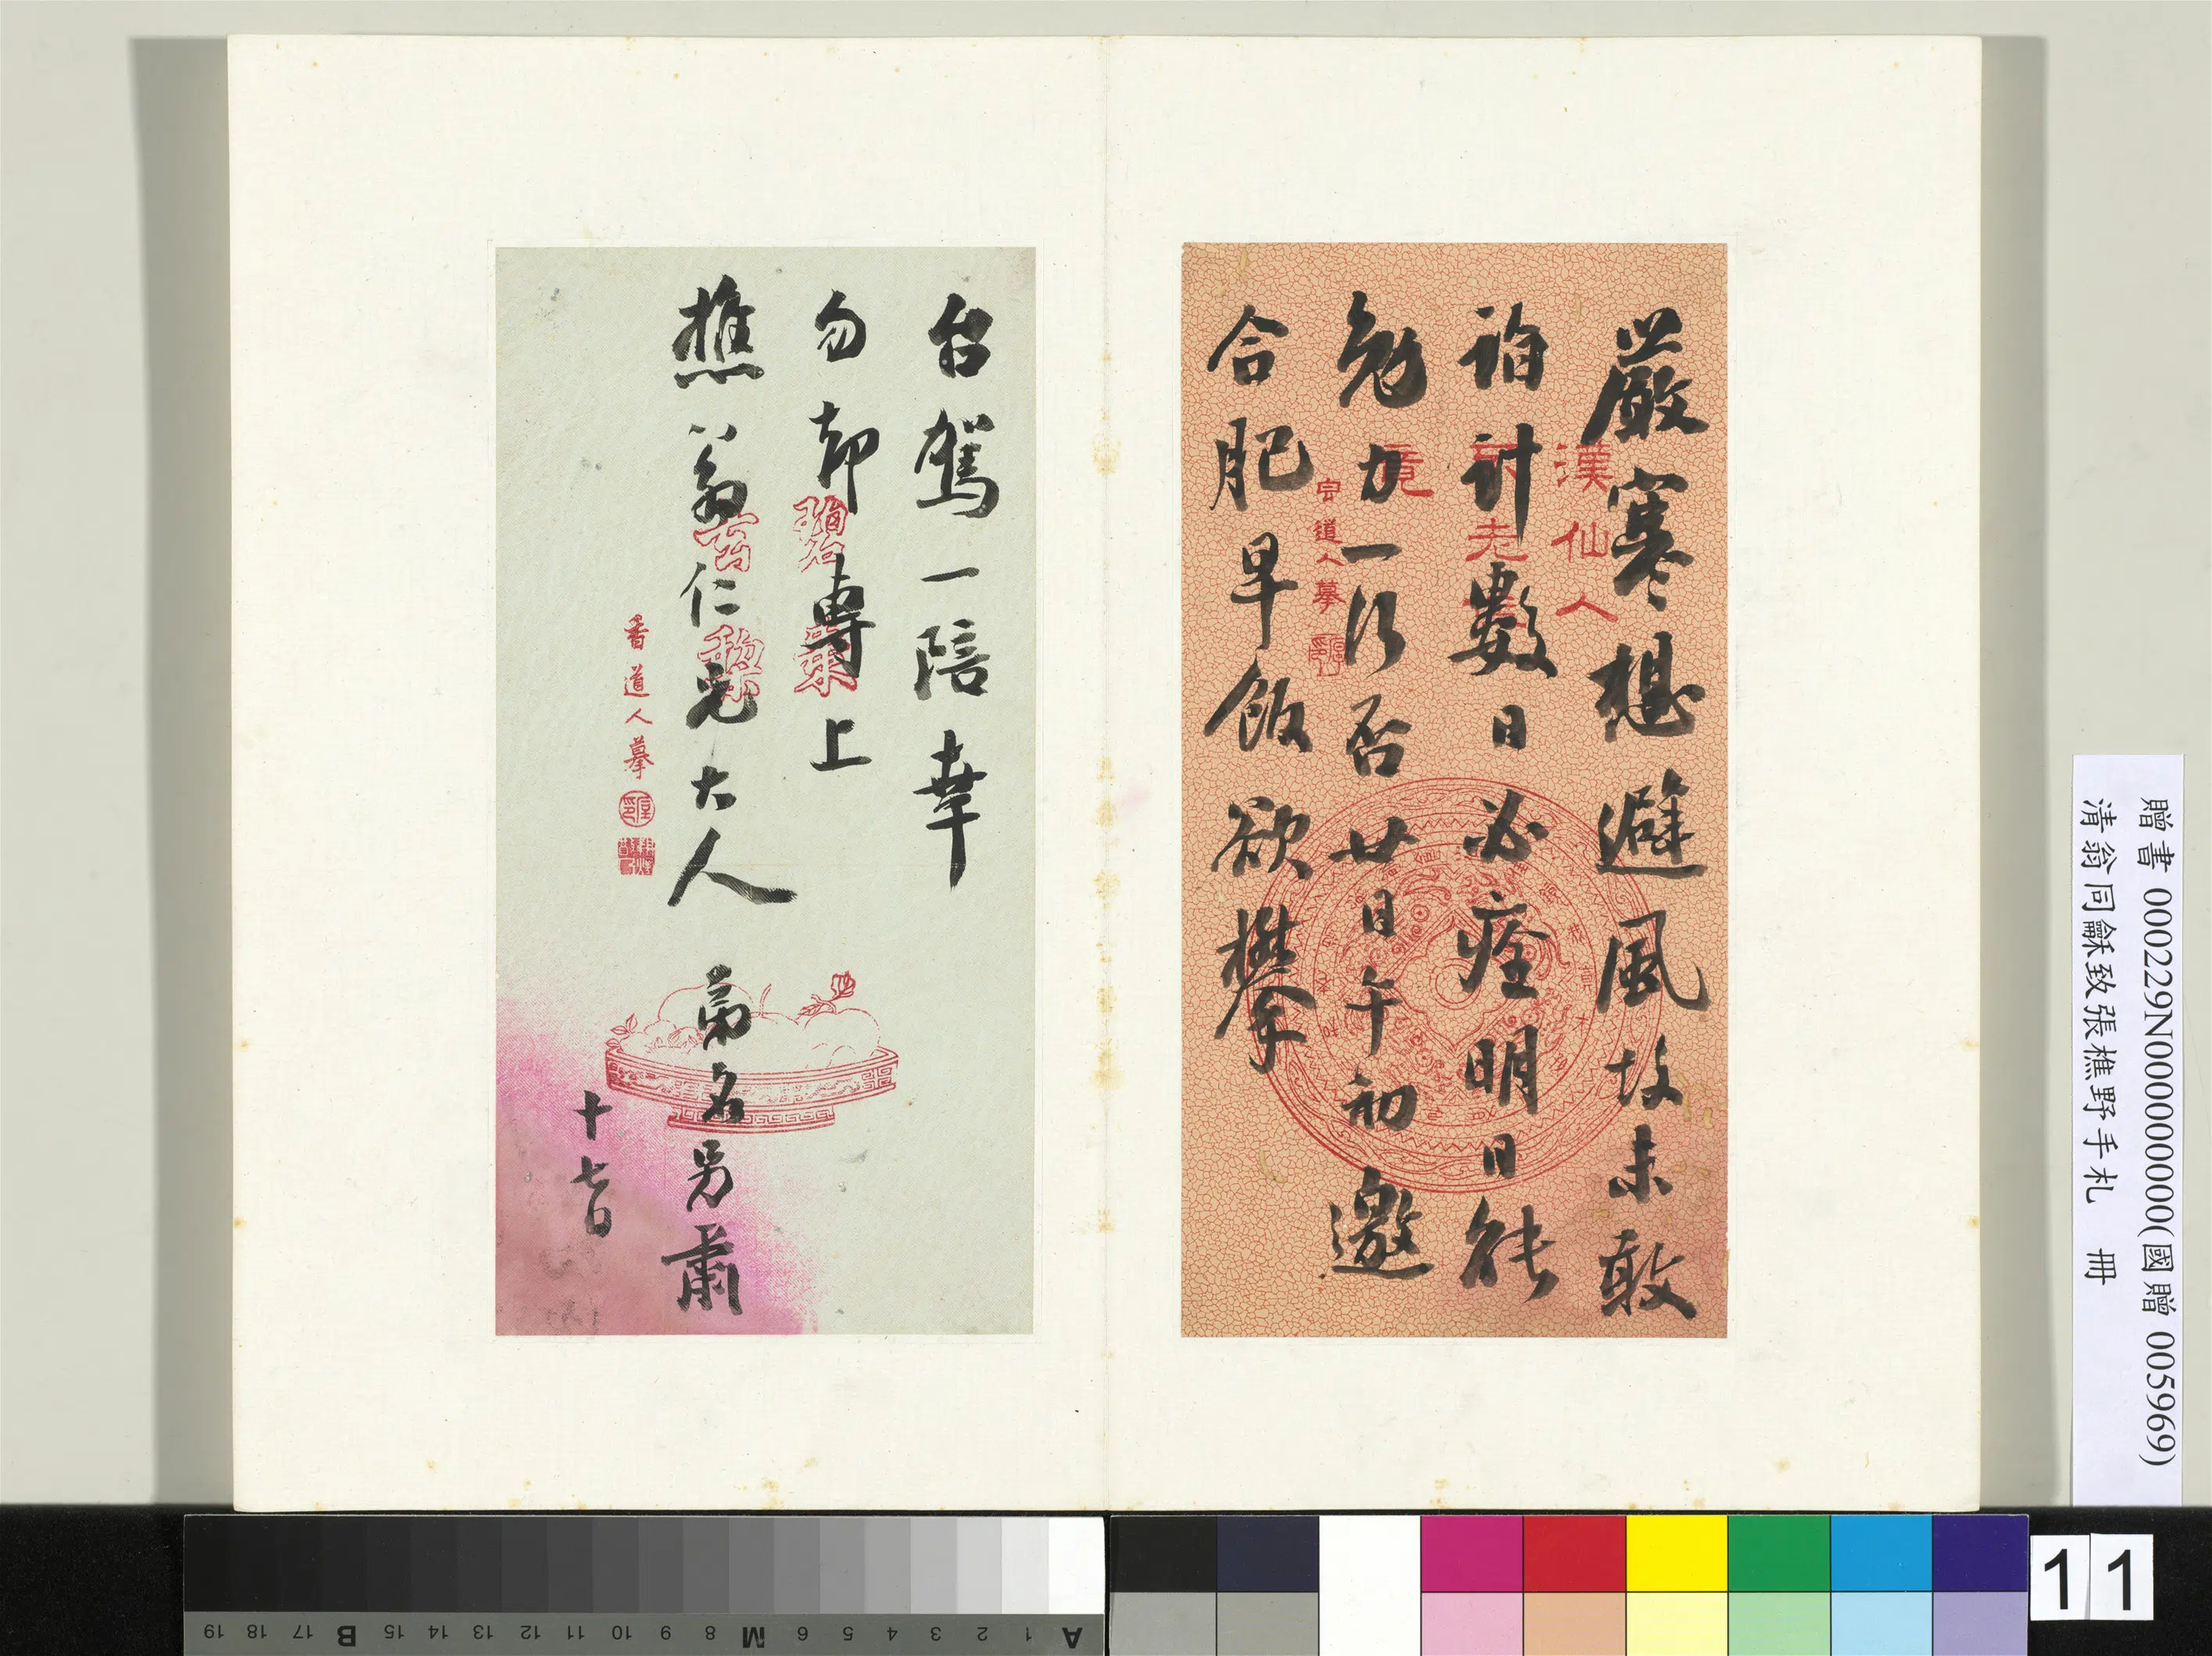 嚴寒想避風故未敢
詣計數日必痊明日能
勉力一行否廿日午初邀
合肥早飯欲攀
漢仙人
竟
道人摹
台駕一陪幸
勿却專上
樵翁仁兄大人 弟名另肅
十七日
香道人摹
贈書 000229N000000000(國贈 005969)
清翁同龢致張樵野手札 冊
A 1 2 3 4 5 6 7 8 M 9 10 11 12 13 14 15 B 17 18 19
11